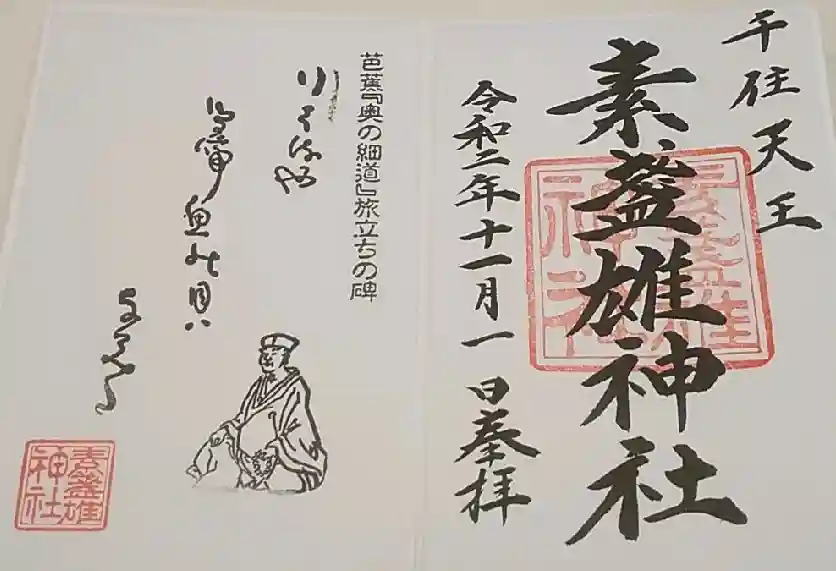 千住天王
素盞雄神社
素盞雄神社
令和二年十一月一日奉拝
芭蕉『奥の細道』旅立ちの碑
鳥啼魚の目ハ
素盞雄神社